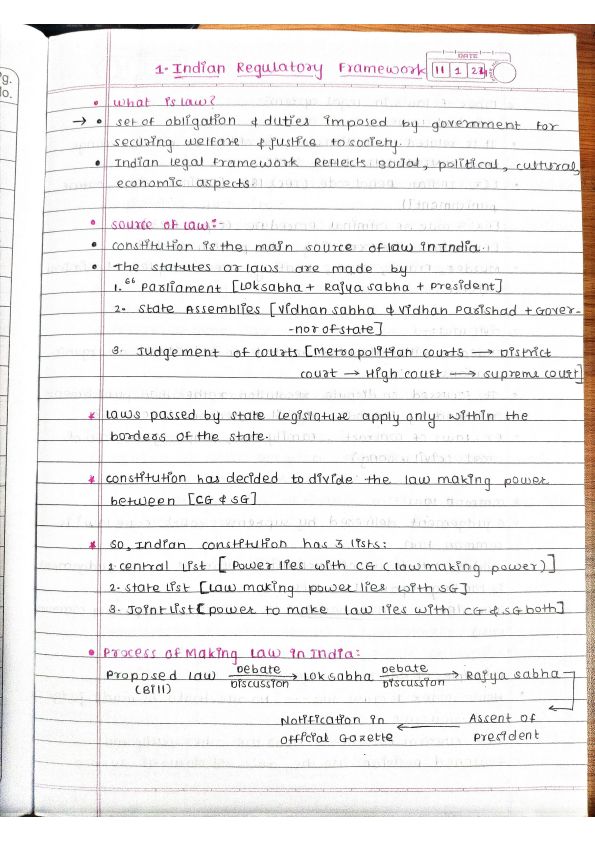 Pg.
No.
DATE
1. Indian Regulatory Framework 11 1 24
• What is law?
→ • set of obligation & duties imposed by government for
securing welfare & justice to society.
• Indian legal framework Reflects social, political, cultural,
economic aspects
• source of law:-
• constitution is the main source of law in India.
• The statutes or laws are made by
1. Parliament [Loksabha + Rajya sabha + President]
2- State Assemblies [Vidhan sabha & Vidhan Parishad + Gover-
-nor of state]
3. Judgement of courts [Metropolition courts → District
court → High court → supreme court]
* laws passed by state legislature apply only within the
borders of the state.
* constitution has decided to divide the law making power
between [CG & SG]
* so, Indian constitution has 3 lists:
1. central list [Power lies with CG (law making power)]
2- state list [Law making power lies with SG]
3. Joint list [power to make law lies with CG & SG both]
• Process of Making Law in India:
Proposed Law Debate Discussion → Loksabha Debate Discussion → Rajya sabha
(Bill)
Notification in ← Assent of
official Gazette President